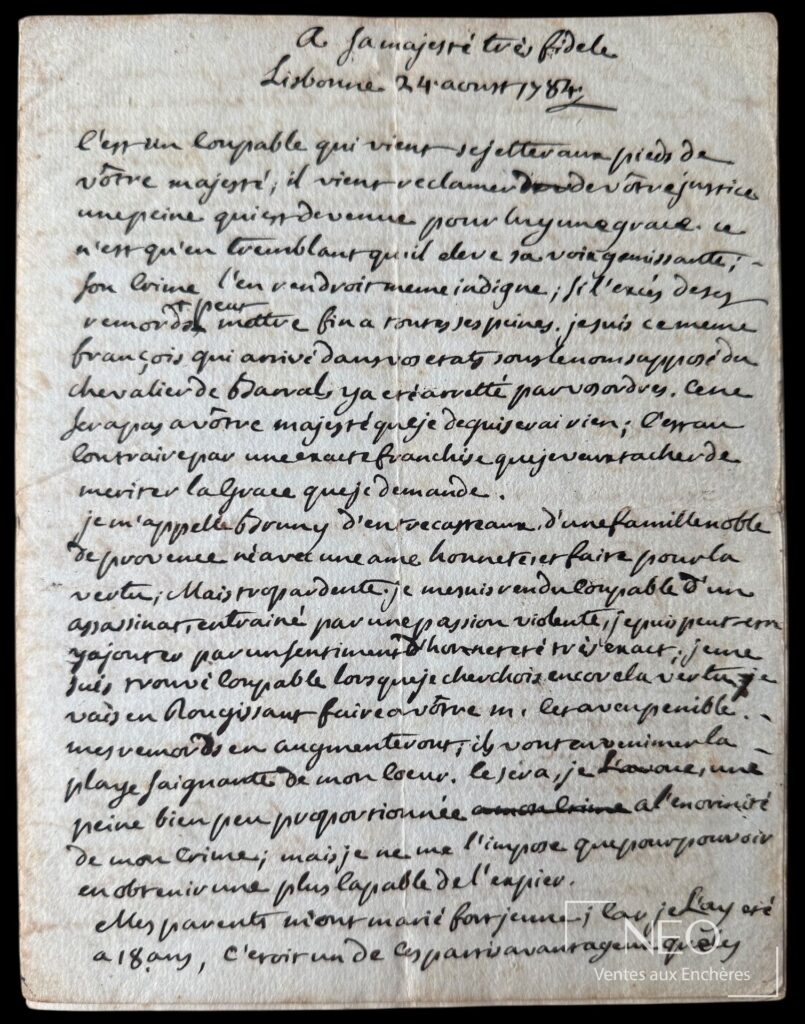 A sa majesté très fidele
Lisbonne 24 aoust 1784
C'est un Coupable qui vient se jetter aux pieds de
vôtre majesté; il vient reclamer de vôtre justice
une peine qui est devenue pour luy une grace. ce
n'est qu'en tremblant qu'il eleve sa voix gemissante;
son Crime l'en rendroit meme indigne; si l'excés de ses
remords peut mettre fin a toutes ses peines. je suis ce meme
françois qui arrivé dans vos etats sous le nom supposé du
chevalier de Barrals y a eté arretté par vos ordres. Ce ne
sera pas a vôtre majesté que je deguiserai rien; C'est au
Contraire par une exacte franchise que je veux tacher de
meriter la Grace que je demande.
je m'appelle Bruny d'entrecasteaux, d'une famille noble
de provence né avec une ame honnete, et faite pour la
vertu; Mais trop ardente. je me suis rendu Coupable d'un
assassinat, entrainé par une passion violente, je puis peut-etre
y ajouter par un sentiment d'honneteté très exact; je me
suis trouvé Coupable lorsque je cherchois encore la vertu, je
vais en Rougissant faire a vôtre m. Cet aveu penible.
mes remords en augmenteront; ils vont envenimer la
playe saignante de mon Coeur. Ce sera, je l'avoue, une
peine bien peu proportionnée a mon Crime a l'enormité
de mon Crime; mais je ne me l'impose que pour pouvoir
en obtenir une plus Capable de l'expier.
Mes parents m'ont marié fort jeune; Car je l'ay eté
a 18 ans, C'etoit un de Ces partis avantageux que les
NEO
Ventes aux Enchères